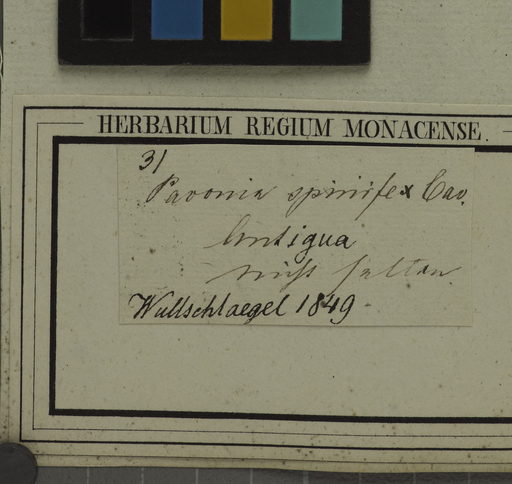 HERBARIUM REGIUM MONACENSE.
31
Pavonia spinifex Cav.
Antigua
nicht selten
Wullschlaegel 1849